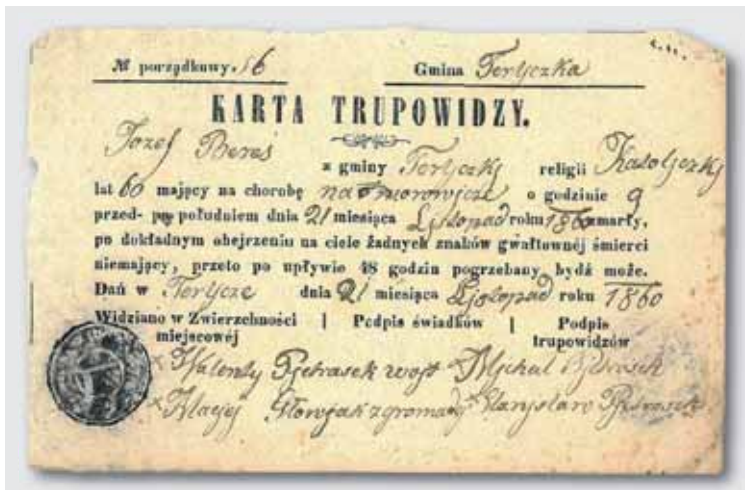 № porządkowy. 16 Gmina Terljczka
KARTA TRUPOWIDZY.
Jozef Bereś z gminy Terljczkj religii Katoljczkj
lat 60 mający na chorobę o godzinie 9
przed- po południem dnia 21 miesiąca Ljstopad roku 1860 zmarły,
po dokładnym obejrzeniu na ciele żadnych znaków gwałtownéj śmierci
niemający, przeto po upływie 48 godzin pogrzebany bydź może.
Dań w Terljcze dnia 21 miesiąca Ljstopad roku 1860
Widziano w Zwierzchności | Podpis świadków | Podpis
miejscowéj trupowidzów
× Walenty Pjetrasek wojt × Mjchal
× Macjej Głowjak z gromady × Stanysław